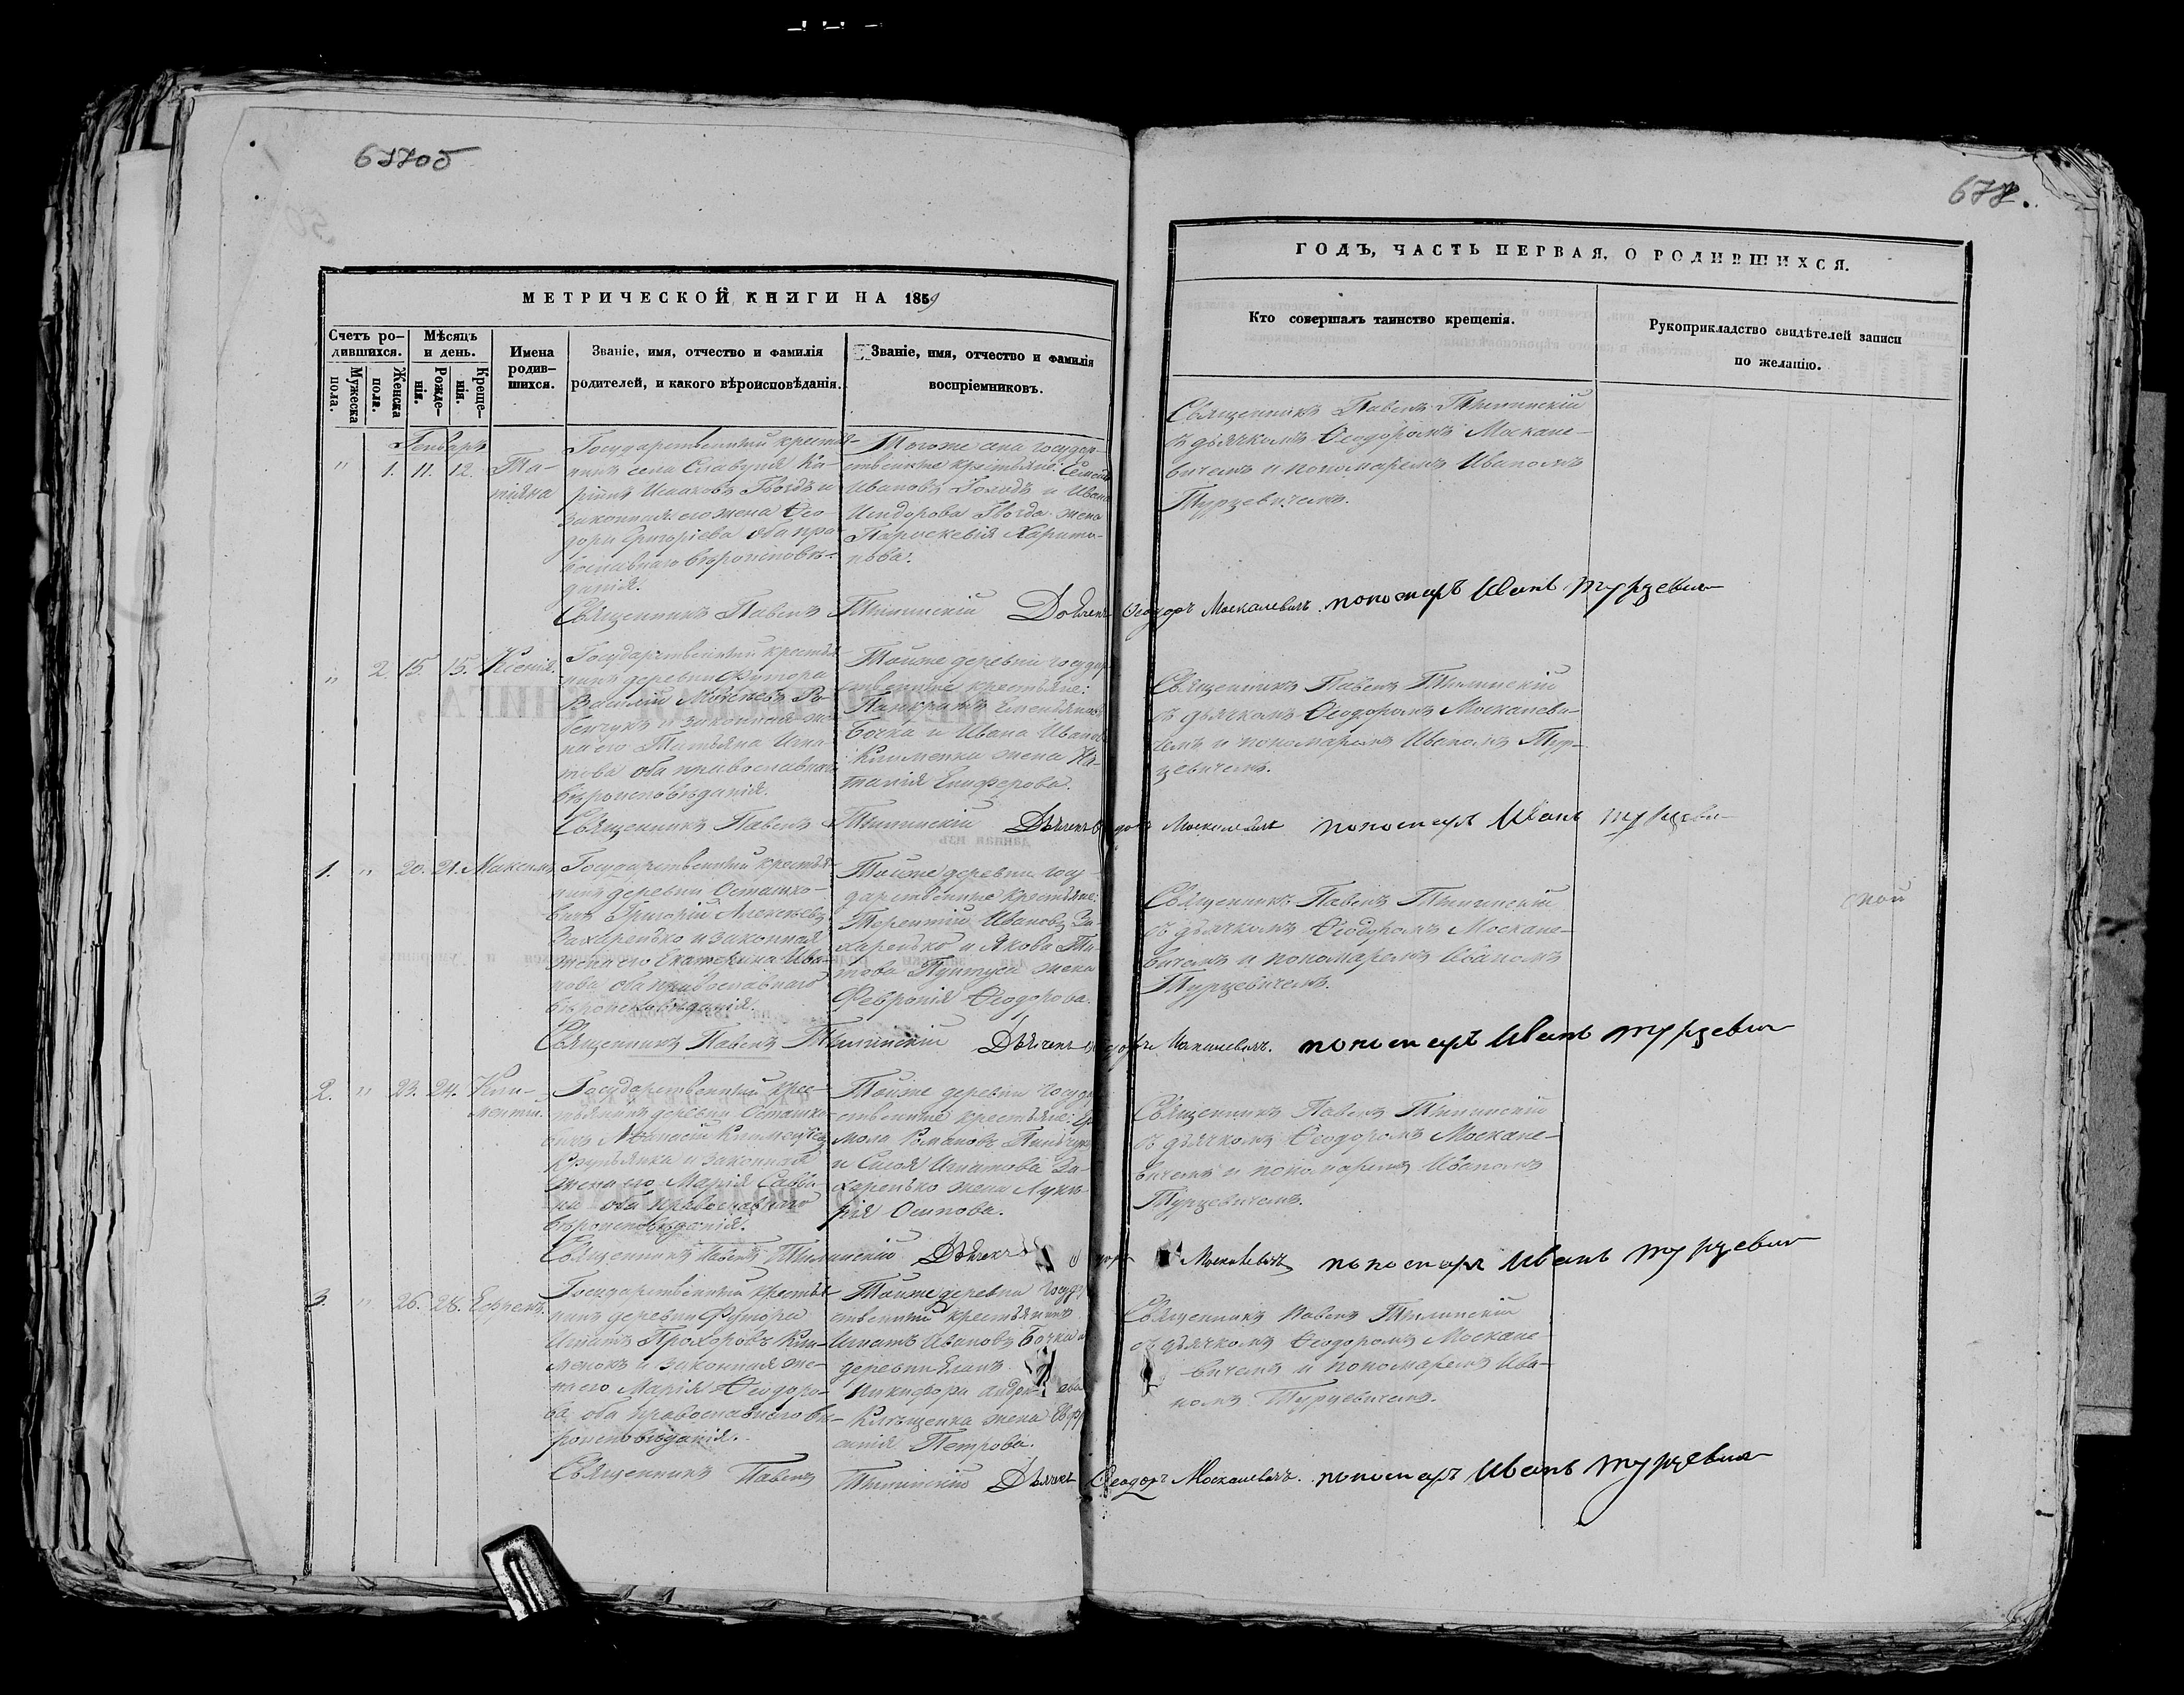 677об
678.
МЕТРИЧЕСКОЙ КНИГИ НА 1859
Счетъ ро-
дившихся.
Мужеска
пола.
Женска
пола.
Мѣсяцъ
и день.
Рожде-
нія.
Креще-
нія.
Имена
родив-
шихся.
Званіе, имя, отчество и фамилія
родителей, и какого вѣроисповѣданія.
Званіе, имя, отчество и фамилія
воспріемниковъ.
ГОДЪ, ЧАСТЬ ПЕРВАЯ, О РОДИВШИХСЯ.
Кто совершалъ таинство крещенія.
Рукоприкладство свидѣтелей записи
по желанію.
Генварь
" 1. 11. 12.
Та-
тіяна
Государственный крестья-
нинъ села
Исааковъ Гвоздь и
законная его жена Ѳео-
дора Григоріева оба пра-
вославнаго вѣроисповѣ-
данія.
Тогоже села государ-
ственные крестьяне: Семенъ
Ивановъ и Ивана
Исидорова Гвоздя жена
Параскевія Харито-
нова.
Священникъ Павелъ
съ дьячкомъ Ѳеодоромъ Москале-
вичемъ и пономаремъ Иваномъ
Турцевичемъ.
Священникъ Павелъ Дьячекъ Ѳеодоръ Москалевичъ. пономарь Иванъ Турцевич
" 2. 15. 15. Ксенія.
Государственный крестья-
нинъ деревни Футора
Василій
и законная же-
на его Татьяна Игна-
това оба православнаго
вѣроисповѣданія.
Тойже деревни государ-
ственные крестьяне:
Панкратъ
Бочка и Ивана Иванова
Клименка жена На-
талія Елиферова.
Священникъ Павелъ
съ дьячкомъ Ѳеодоромъ Москалеви-
чемъ и пономаремъ Иваномъ Тур-
цевичемъ.
Священникъ Павелъ Дьячекъ Москалевичъ пономарь Иванъ Турцеви
1. " 20. 21. Максимъ
Государственный крестья-
нинъ деревни Осташко-
вичъ Григорій Алексѣевъ
Захаренько и законная
жена его Екатерина Ива-
нова оба православнаго
вѣроисповѣданія.
Тойже деревни госу-
дарственные крестьяне:
Терентій Ивановъ За-
харенько и Якова Ти-
това Пунтуса жена
Февронія Ѳеодорова.
Священникъ Павелъ
съ дьячкомъ Ѳеодоромъ Москале-
вичемъ и пономаремъ Иваномъ
Турцевичемъ.
Священникъ Павелъ Дьячекъ Москалевичъ. пономарь Иванъ Турцевич
2. " 23. 24. Кли-
ментій.
Государственный крес-
тьянинъ деревни Осташко-
вичъ Аѳанасій
и законная
жена его Марія Савви-
на оба православнаго
вѣроисповѣданія.
Тойже деревни государ-
ственные крестьяне: Ер-
мола Романовъ
и Сысоя Игнатова За-
харенько жена Луке-
рія Осипова.
Священникъ Павелъ
съ дьячкомъ Ѳеодоромъ Москале-
вичемъ и пономаремъ Иваномъ
Турцевичемъ.
Священникъ Павелъ Дьячекъ Москалевичъ пономарь Иванъ Турцевич
3. " 26. 28. Ефремъ.
Государственный крестья-
нинъ деревни Футора
Игнатъ Прохоровъ Кли-
менокъ и законная же-
на его Марія Ѳеодоро-
ва оба православнаго вѣ-
роисповѣданія.
Тойже деревни
ственный крестьянинъ
Игнатъ Ивановъ Бочка и
деревни
Никифора Андреева
жена Евфро-
синія Петрова.
Священникъ Павелъ
съ дьячкомъ Ѳеодоромъ Москале-
вичемъ и пономаремъ Ива-
номъ Турцевичемъ.
Священникъ Павелъ Дьячекъ Ѳеодоръ Москалевичъ. пономарь Иванъ Турцевич